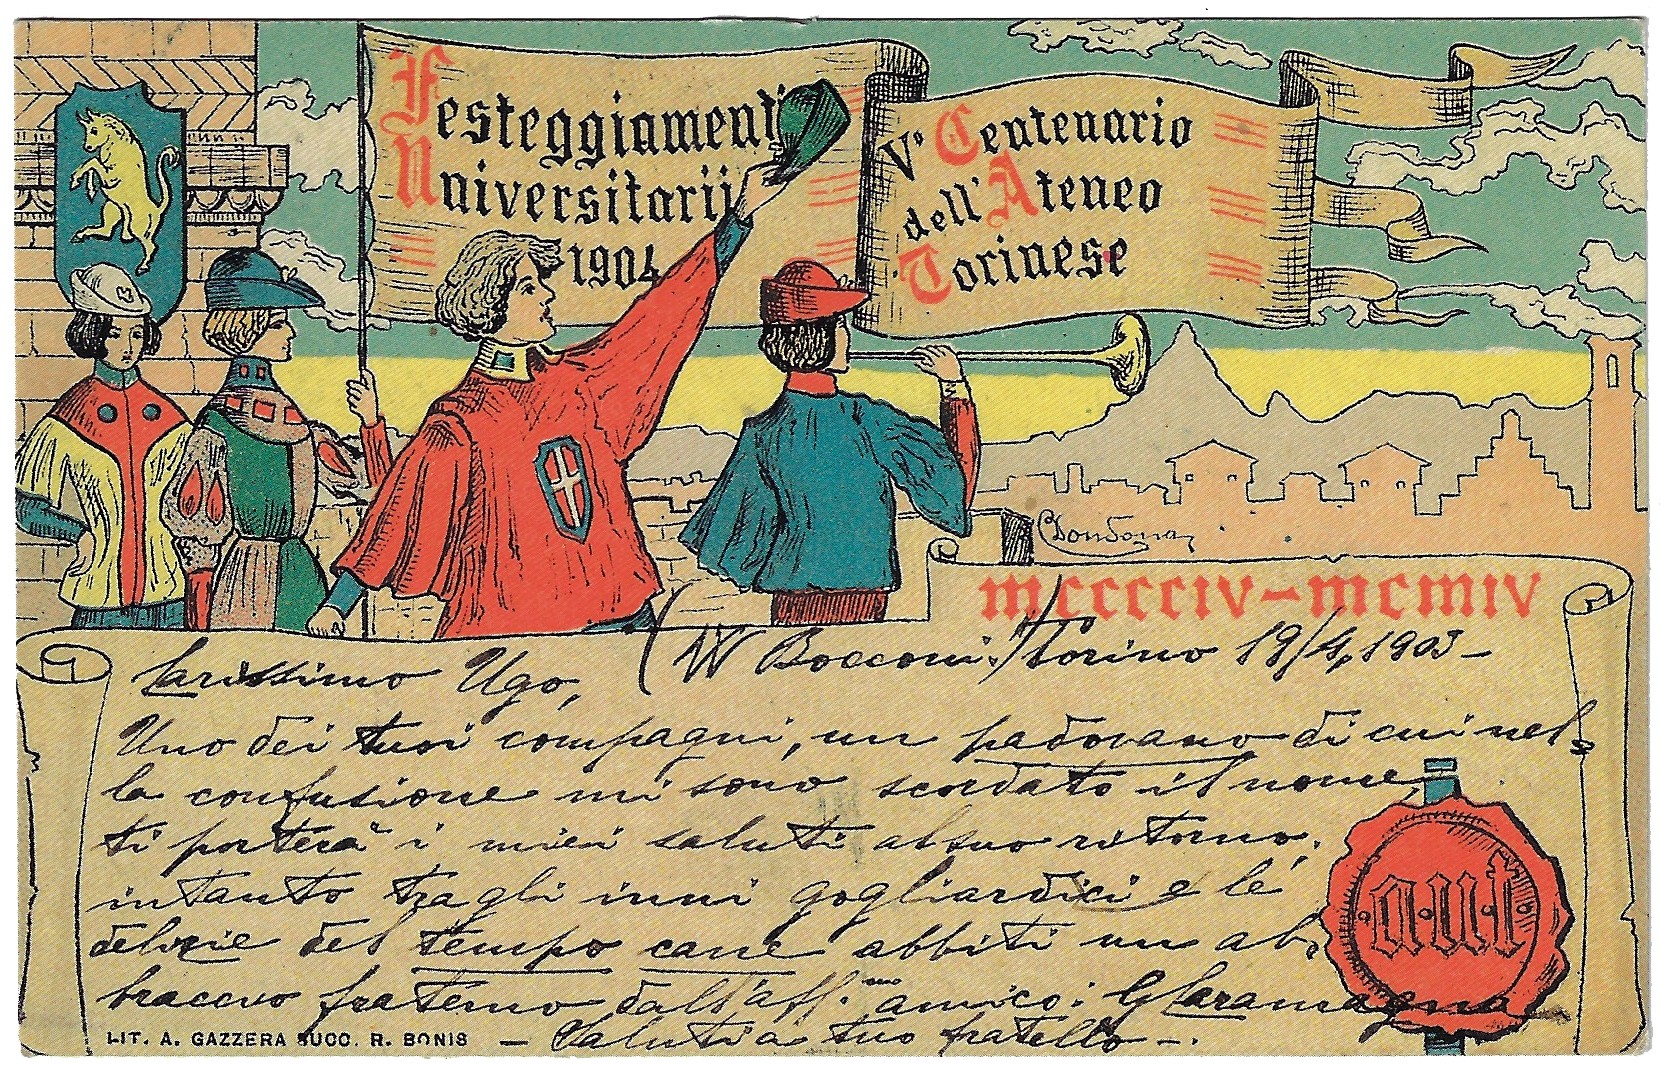 Festeggiamenti
Universitarii
1904
Vº Centenario
dell' Ateneo
Torinese
CDondona
MCCCCIV–MCMIV
(W Bocconi!) Torino 19/4, 1903 –
Carissimo Ugo,
Uno dei tuoi compagni, un padovano di cui nel-
la confusione mi sono scordato il nome,
ti porterà i miei saluti al suo ritorno.
intanto tra gli inni gogliardici e le
delizie del tempo cane abbiti un ab-
braccio fraterno dall'aff.mo amico: G Caramagna
– Saluti a tuo fratello –.
a·u·t
LIT. A. GAZZERA SUCC. R. BONIS